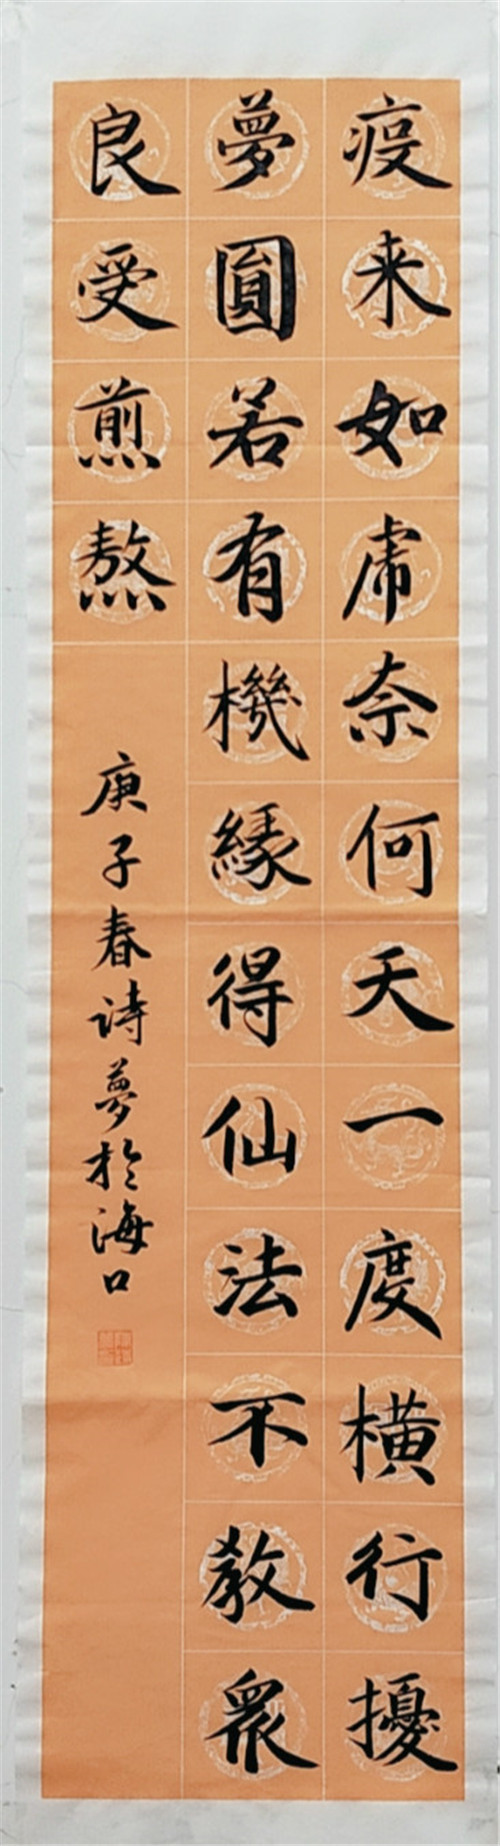 疫来如虎奈何天一度横行擾
夢圓若有機緣得仙法不教衆
良受煎熬
庚子春诗夢於海口